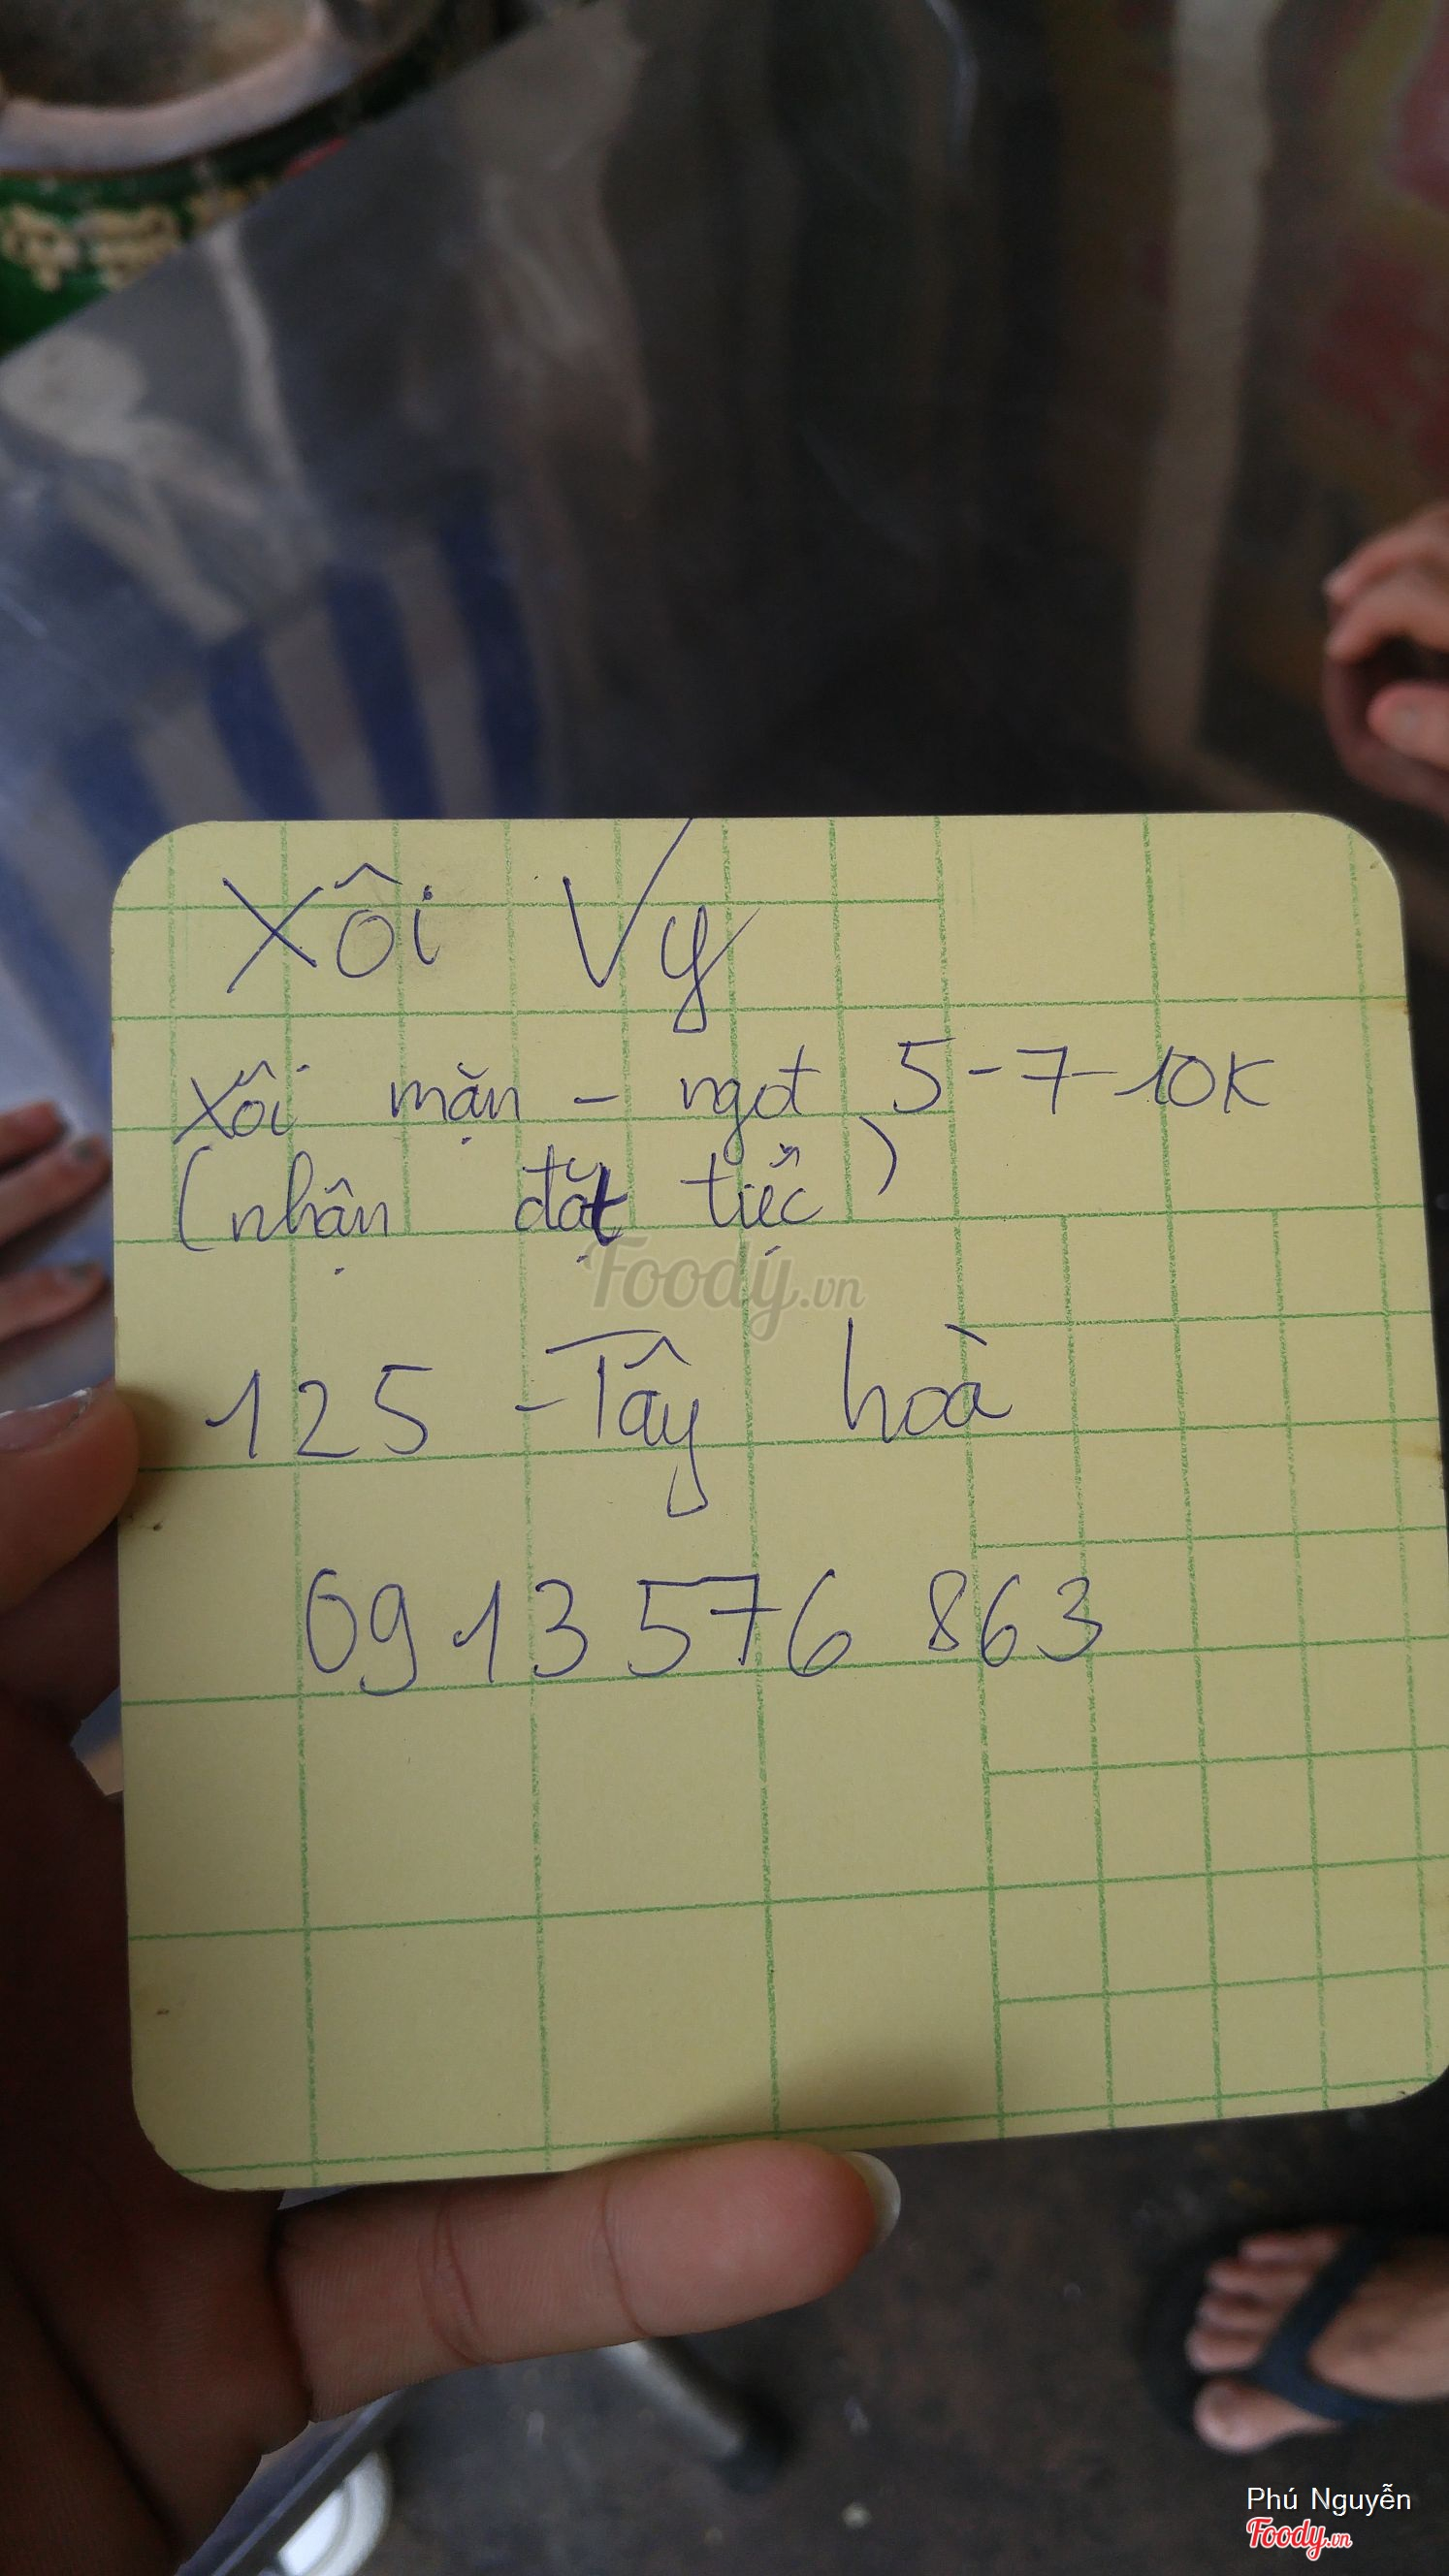 Xôi Vy
Xôi mặn - ngọt 5-7-10K
(nhận đặt tiệc)
Foody.vn
125 - Tây hoà
0913 576 863
Phú Nguyễn
Foody.vn